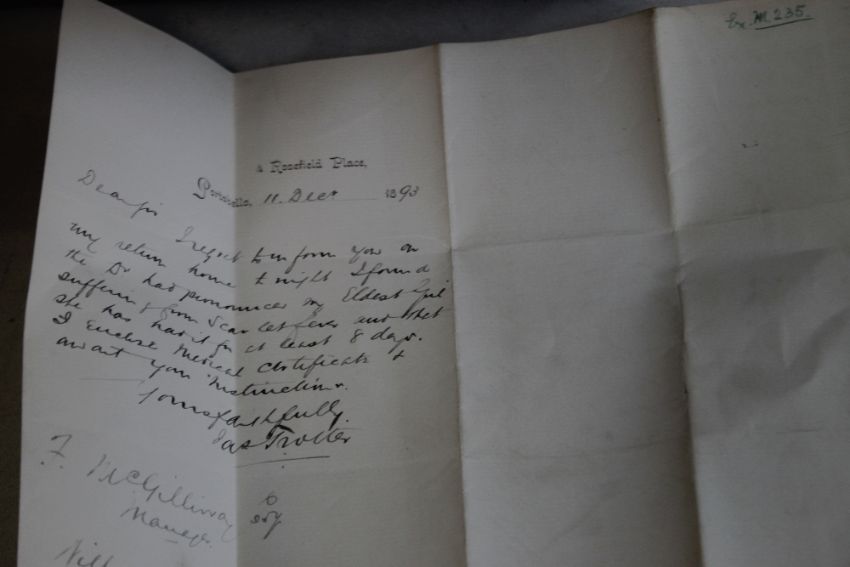 Ex. M. 235.
4 Rosefield Place,
Portobello, 11. Decr 1893
Dear Sir
I regret to inform you on
my return home to night I found
the Dr had pronounced my Eldest Girl
suffering from Scarlet fever and that
she has had it for at least 8 days.
I enclose Medical Certificate &
await your instructions.
Yours faithfully
Jas Trotter
F. McGillivray
Manager